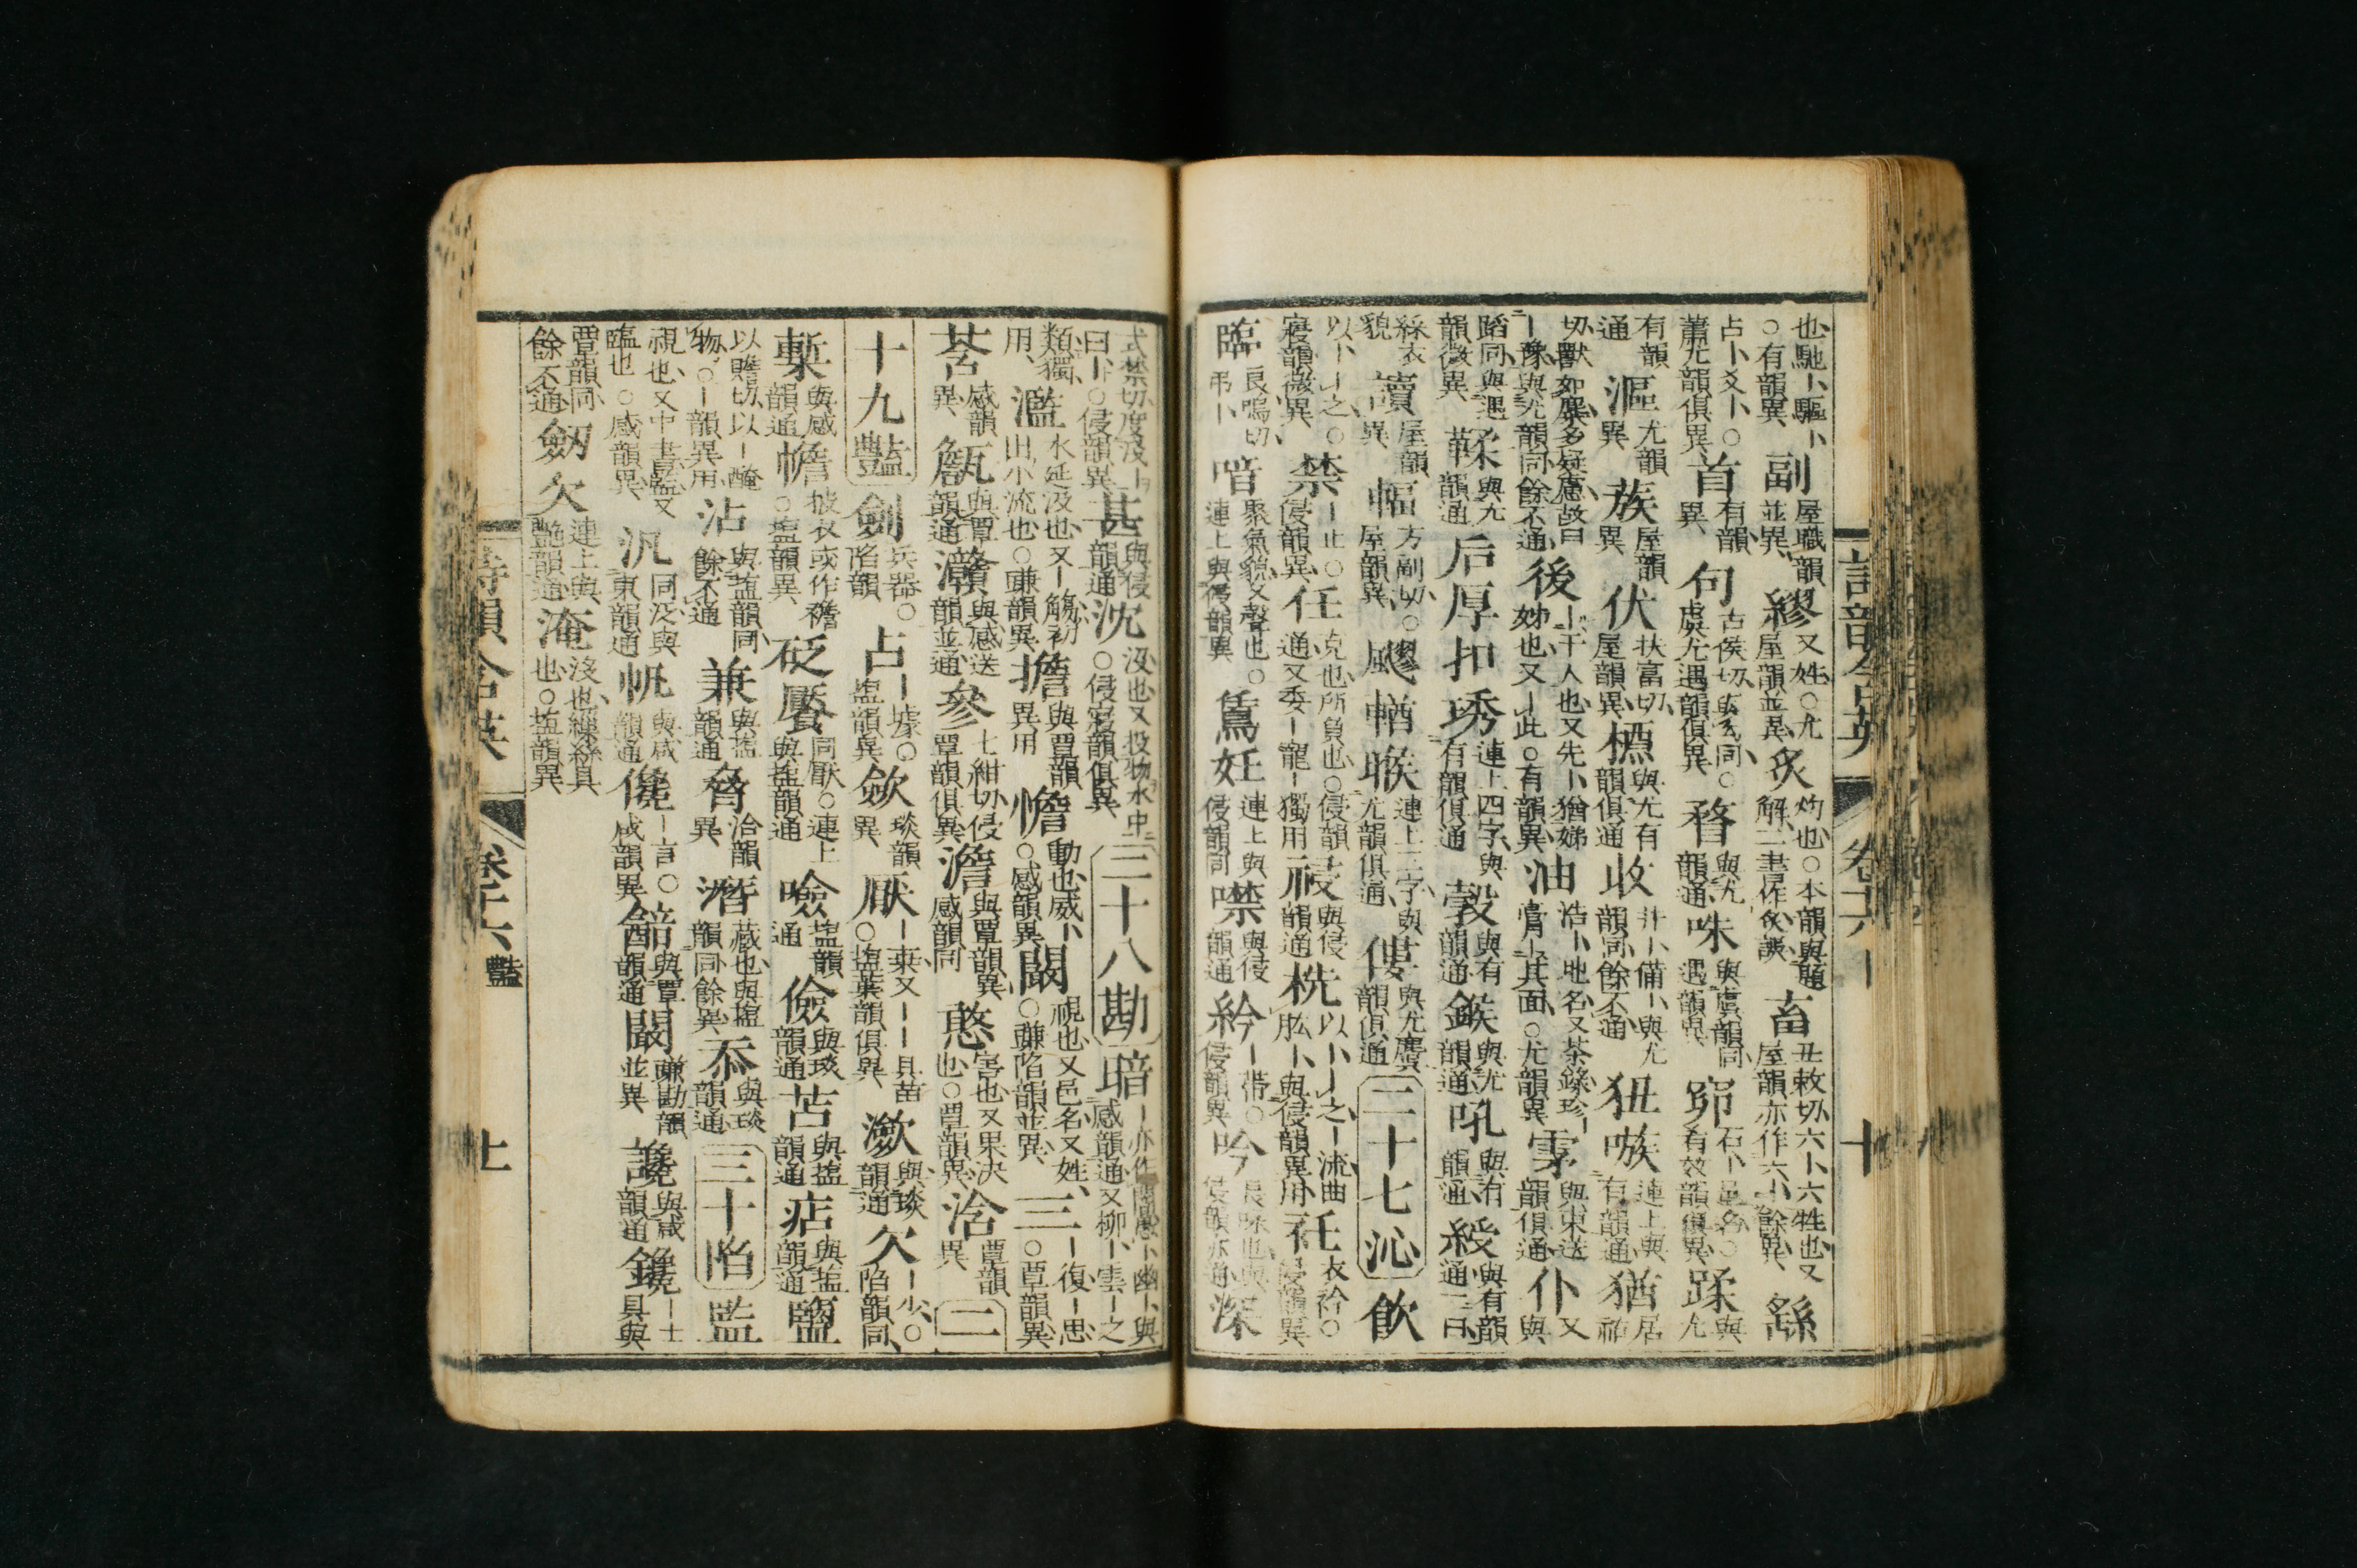 也馳卜驅卜○有韻異副屋職韻並異繆又姓○尤屋韻並異炙灼也○本韻與題解二書作灸誤畜丑救切六卜六牲也又屋韻亦作六卜餘異繇
占卜爻卜○蕭尤韻俱異首有韻異句古侯切與冓同○虞尤遇韻俱異瞀與尤韻通咮與虞韻同遇韻異窌石卜邑名○有效韻俱異蹂與尤
有韻通漚尤韻異蔟屋韻異伏扶富切屋韻異槱與尤有韻俱通收井卜備卜與尤韻同餘不通狃嗾連上與有韻通猶居祐
切獸如麂多疑慮故曰-豫與尤韻同餘不通後卜干人也又先卜猶娣姒也又-此○有韻異油浩卜地名又茶錄珍-膏卜其面○尤韻異雺與東送韻俱通仆又與
踣同與遇韻微異鞣與尤韻通后厚扣琇連上四字與有韻俱通彀與有韻通鍭與尤韻通吼與有韻通綬與有韻通一曰
綵衣貌讀屋韻異幅方副切○屋韻異飂輶㬋連上三字與尤韻俱通僂與尤麌韻俱通二十七沁飲
以卜-之○寢韻微異禁-止○侵韻異任克也所負也○侵韻通又委-寵-獨用祲與侵韻通枕以卜-之-流曲肱卜與侵韻異用衽衣衿○侵韻異
臨良鴆切弔卜喑聚氣貌又聲也○連上與侵韻異鵀妊連上與侵韻同噤與侵韻通紟-帶○侵韻異吟侵韻亦通深
式禁切度深卜曰卜○侵韻異甚與侵韻通沈沒也又投物水中○侵寢韻俱異二十八勘暗-亦作闇愚卜幽卜與感韻通又柳卜雲-之
類獨用濫水延沒也又-觴初出小流也○豏韻異擔與覃韻異用憺動也威卜○感韻異闞視也又邑名又姓○豏陷韻並異三-復-思○覃韻異
莟感韻異甔與覃韻通灨與感送韻並通參七紺切侵覃韻俱異澹與覃韻異感韻同憨害也又果决也○覃韻異浛覃韻異二
十九豔劍兵器○陷韻占-㨿○塩韻異斂琰韻異厭-棄又--具苗○塩葉韻俱異瀲與琰韻通欠-少○陷韻同
槧與感韻通幨披衣或作襜○塩韻異砭饜同厭○連上與塩韻通噞塩韻通儉與琰韻通苫與塩韻通痁與塩韻通鹽
以贍切以-醃物○-韻異用沾與塩韻同餘不通兼與塩韻通脅洽韻異潛藏也與塩韻同餘異忝與琰韻通三十陷監
視也又中書監又臨也○咸韻異汎同泛與東韻通帆與咸韻通儳-言○咸韻異韽與覃韻通闞豏勘韻並異讒與咸韻通鑱-土具與
覃韻同餘不通劒欠連上與豔韻通淹沒也繅絲具也○塩韻異
詩韻含英
卷十六
十
詩韻含英
卷十六
豔